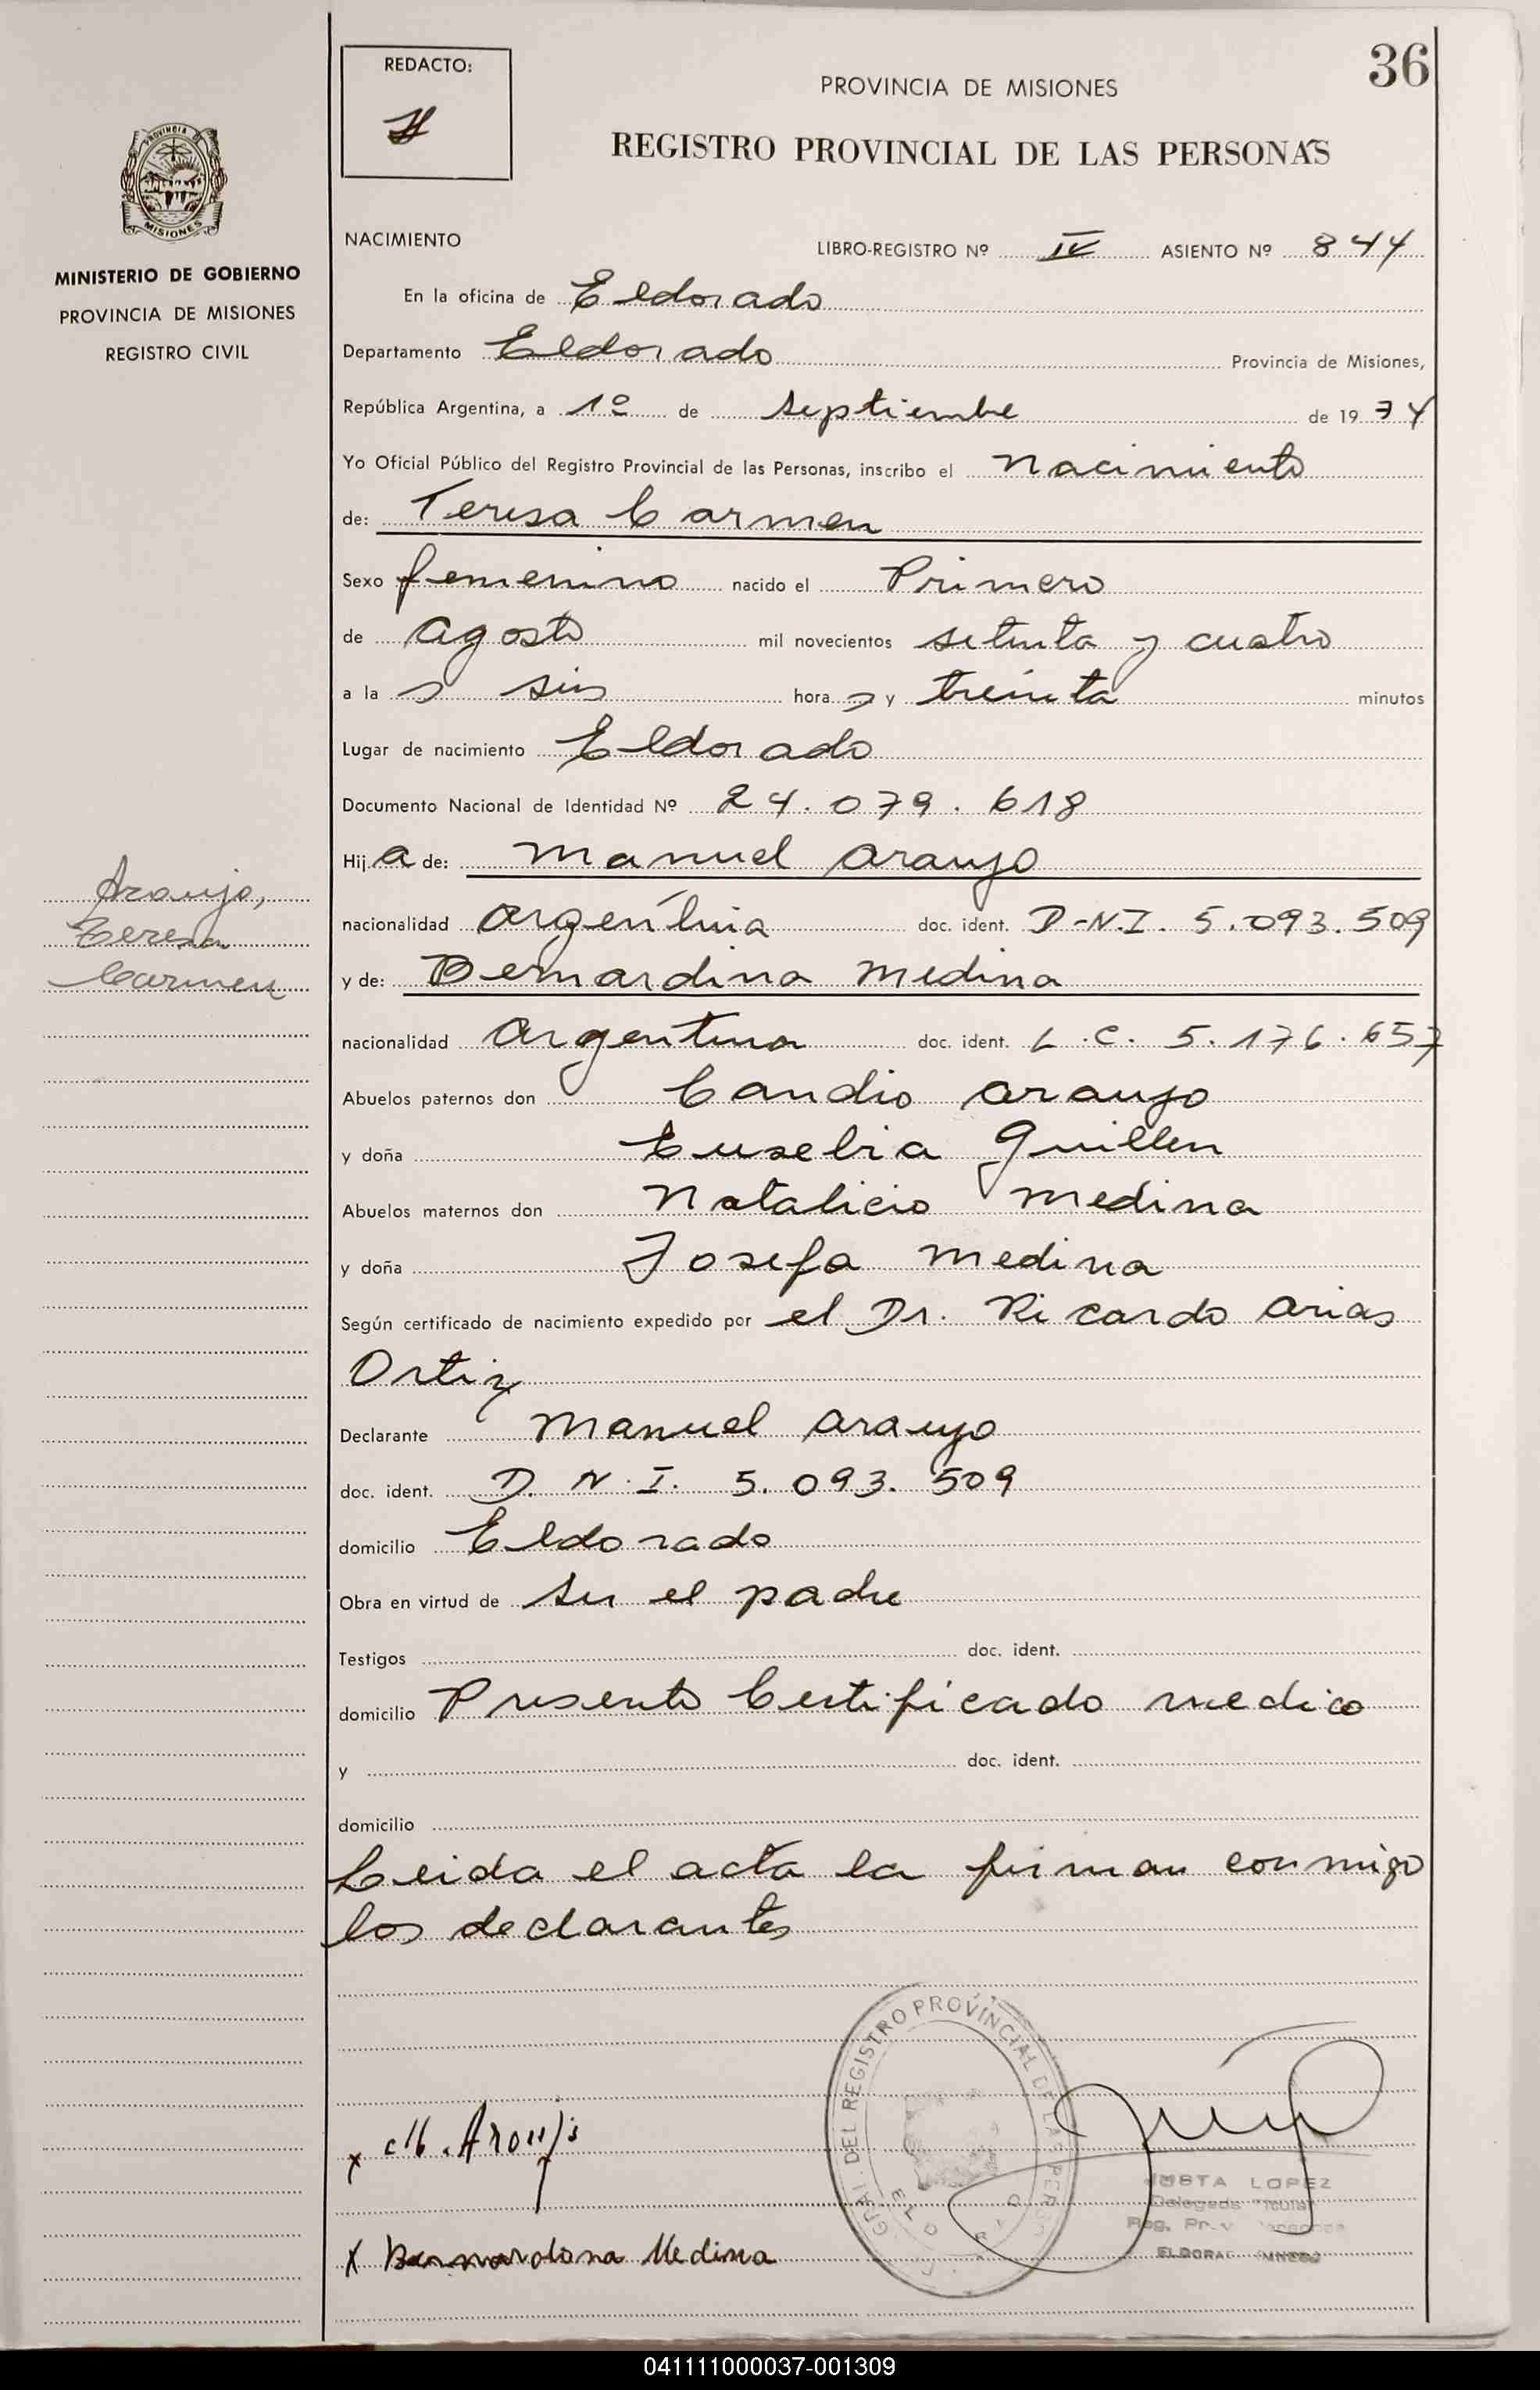 36
REDACTO:
PROVINCIA DE MISIONES
REGISTRO PROVINCIAL DE LAS PERSONAS
PROVINCIA DE
MISIONES
MINISTERIO DE GOBIERNO
PROVINCIA DE MISIONES
REGISTRO CIVIL
NACIMIENTO LIBRO-REGISTRO Nº IV ASIENTO Nº 844
En la oficina de Eldorado
Departamento Eldorado Provincia de Misiones,
República Argentina, a 1º de septiembre de 1974
Yo Oficial Público del Registro Provincial de las Personas, inscribo el nacimiento
de: Teresa Carmen
Sexo femenino nacido el Primero
de agosto mil novecientos setenta y cuatro
a las seis horas y treinta minutos
Lugar de nacimiento Eldorado
Documento Nacional de Identidad Nº 24.079.618
Hija de: Manuel Araujo
Araujo,
Teresa
Carmen
nacionalidad argentina doc. ident. D-N.I. 5.093.509
y de: Bernardina Medina
nacionalidad argentina doc. ident. L.C. 5.176.657
Abuelos paternos don Candio Araujo
y doña Eusebia Guillen
Abuelos maternos don Natalicio Medina
y doña Josefa Medina
Según certificado de nacimiento expedido por el Dr. Ricardo Arias
Ortiz
Declarante Manuel Araujo
doc. ident. D.N.I. 5.093.509
domicilio Eldorado
Obra en virtud de ser el padre
Testigos doc. ident.
domicilio Presento Certificado medico
y doc. ident.
domicilio
Leida el acta la firman conmigo
los declarantes
GRAL. DEL REGISTRO PROVINCIAL DE LAS PERSO
x M. Araujo
JUSTA LOPEZ
Delegada Titular
Reg. Prov.
x Bernardona Medina
041111000037-001309